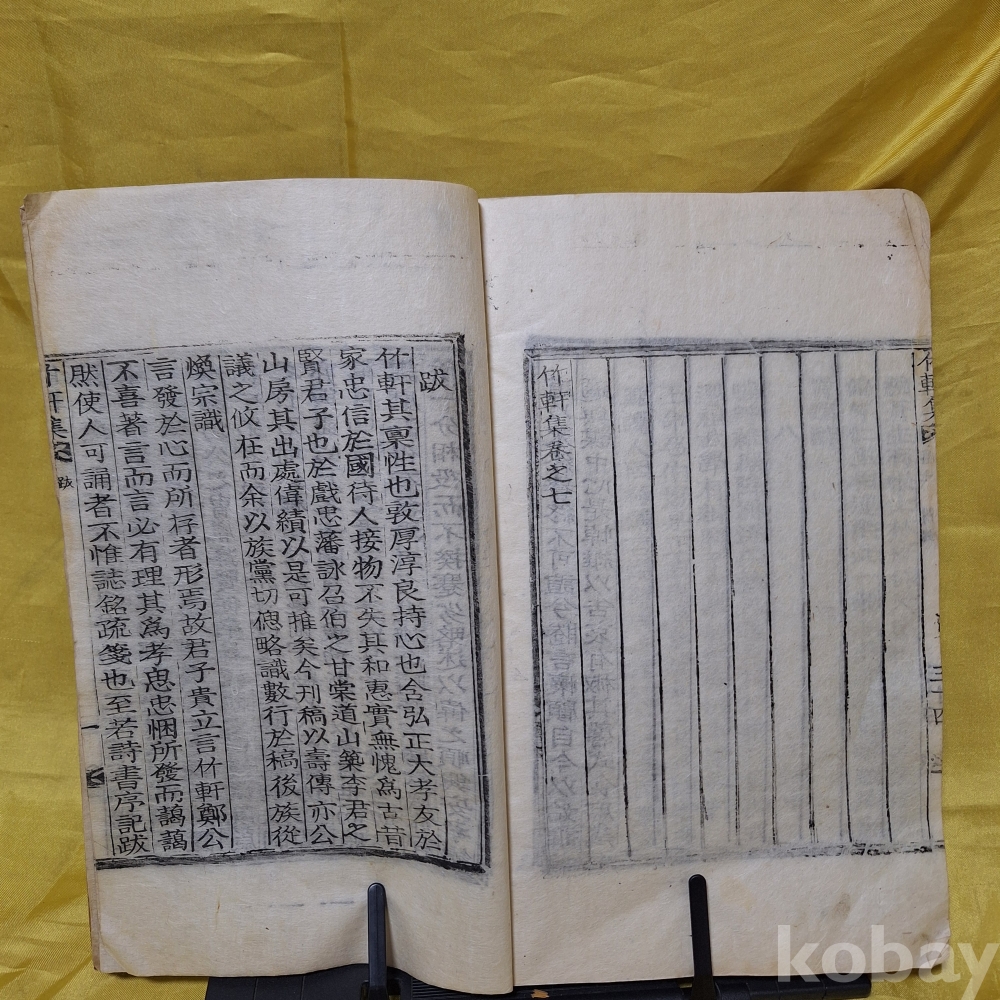 竹軒集
竹軒集卷之七
跋
竹軒其稟性也敦厚淳良持心也含弘正大孝友於
家忠信於國待人接物不失其和惠實無愧爲古昔
賢君子也於戲忠藩詠召伯之甘棠道山築李君之
山房其出處偉績以是可推矣今刊稿以壽傳亦公
議之攸在而余以族黨切偲略識數行於稿後族從
煥宗識
言發於心而所存者形焉故君子貴立言竹軒鄭公
不喜著言而言必有理其爲孝思忠悃所發而藹藹
然使人可誦者不惟誌銘疏箋也至若詩書序記跋
竹軒集
跋
一
kobay